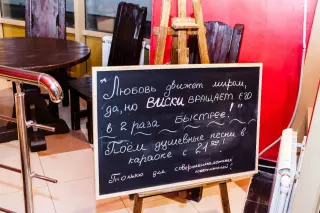 "Любовь движет миром,
да, но ВИСКИ ВРАЩАЕТ ЕГО
в 2 раза БЫСТРЕЕ!"
Поём душевные песни в
караоке с 21
Только для совершеннолетних